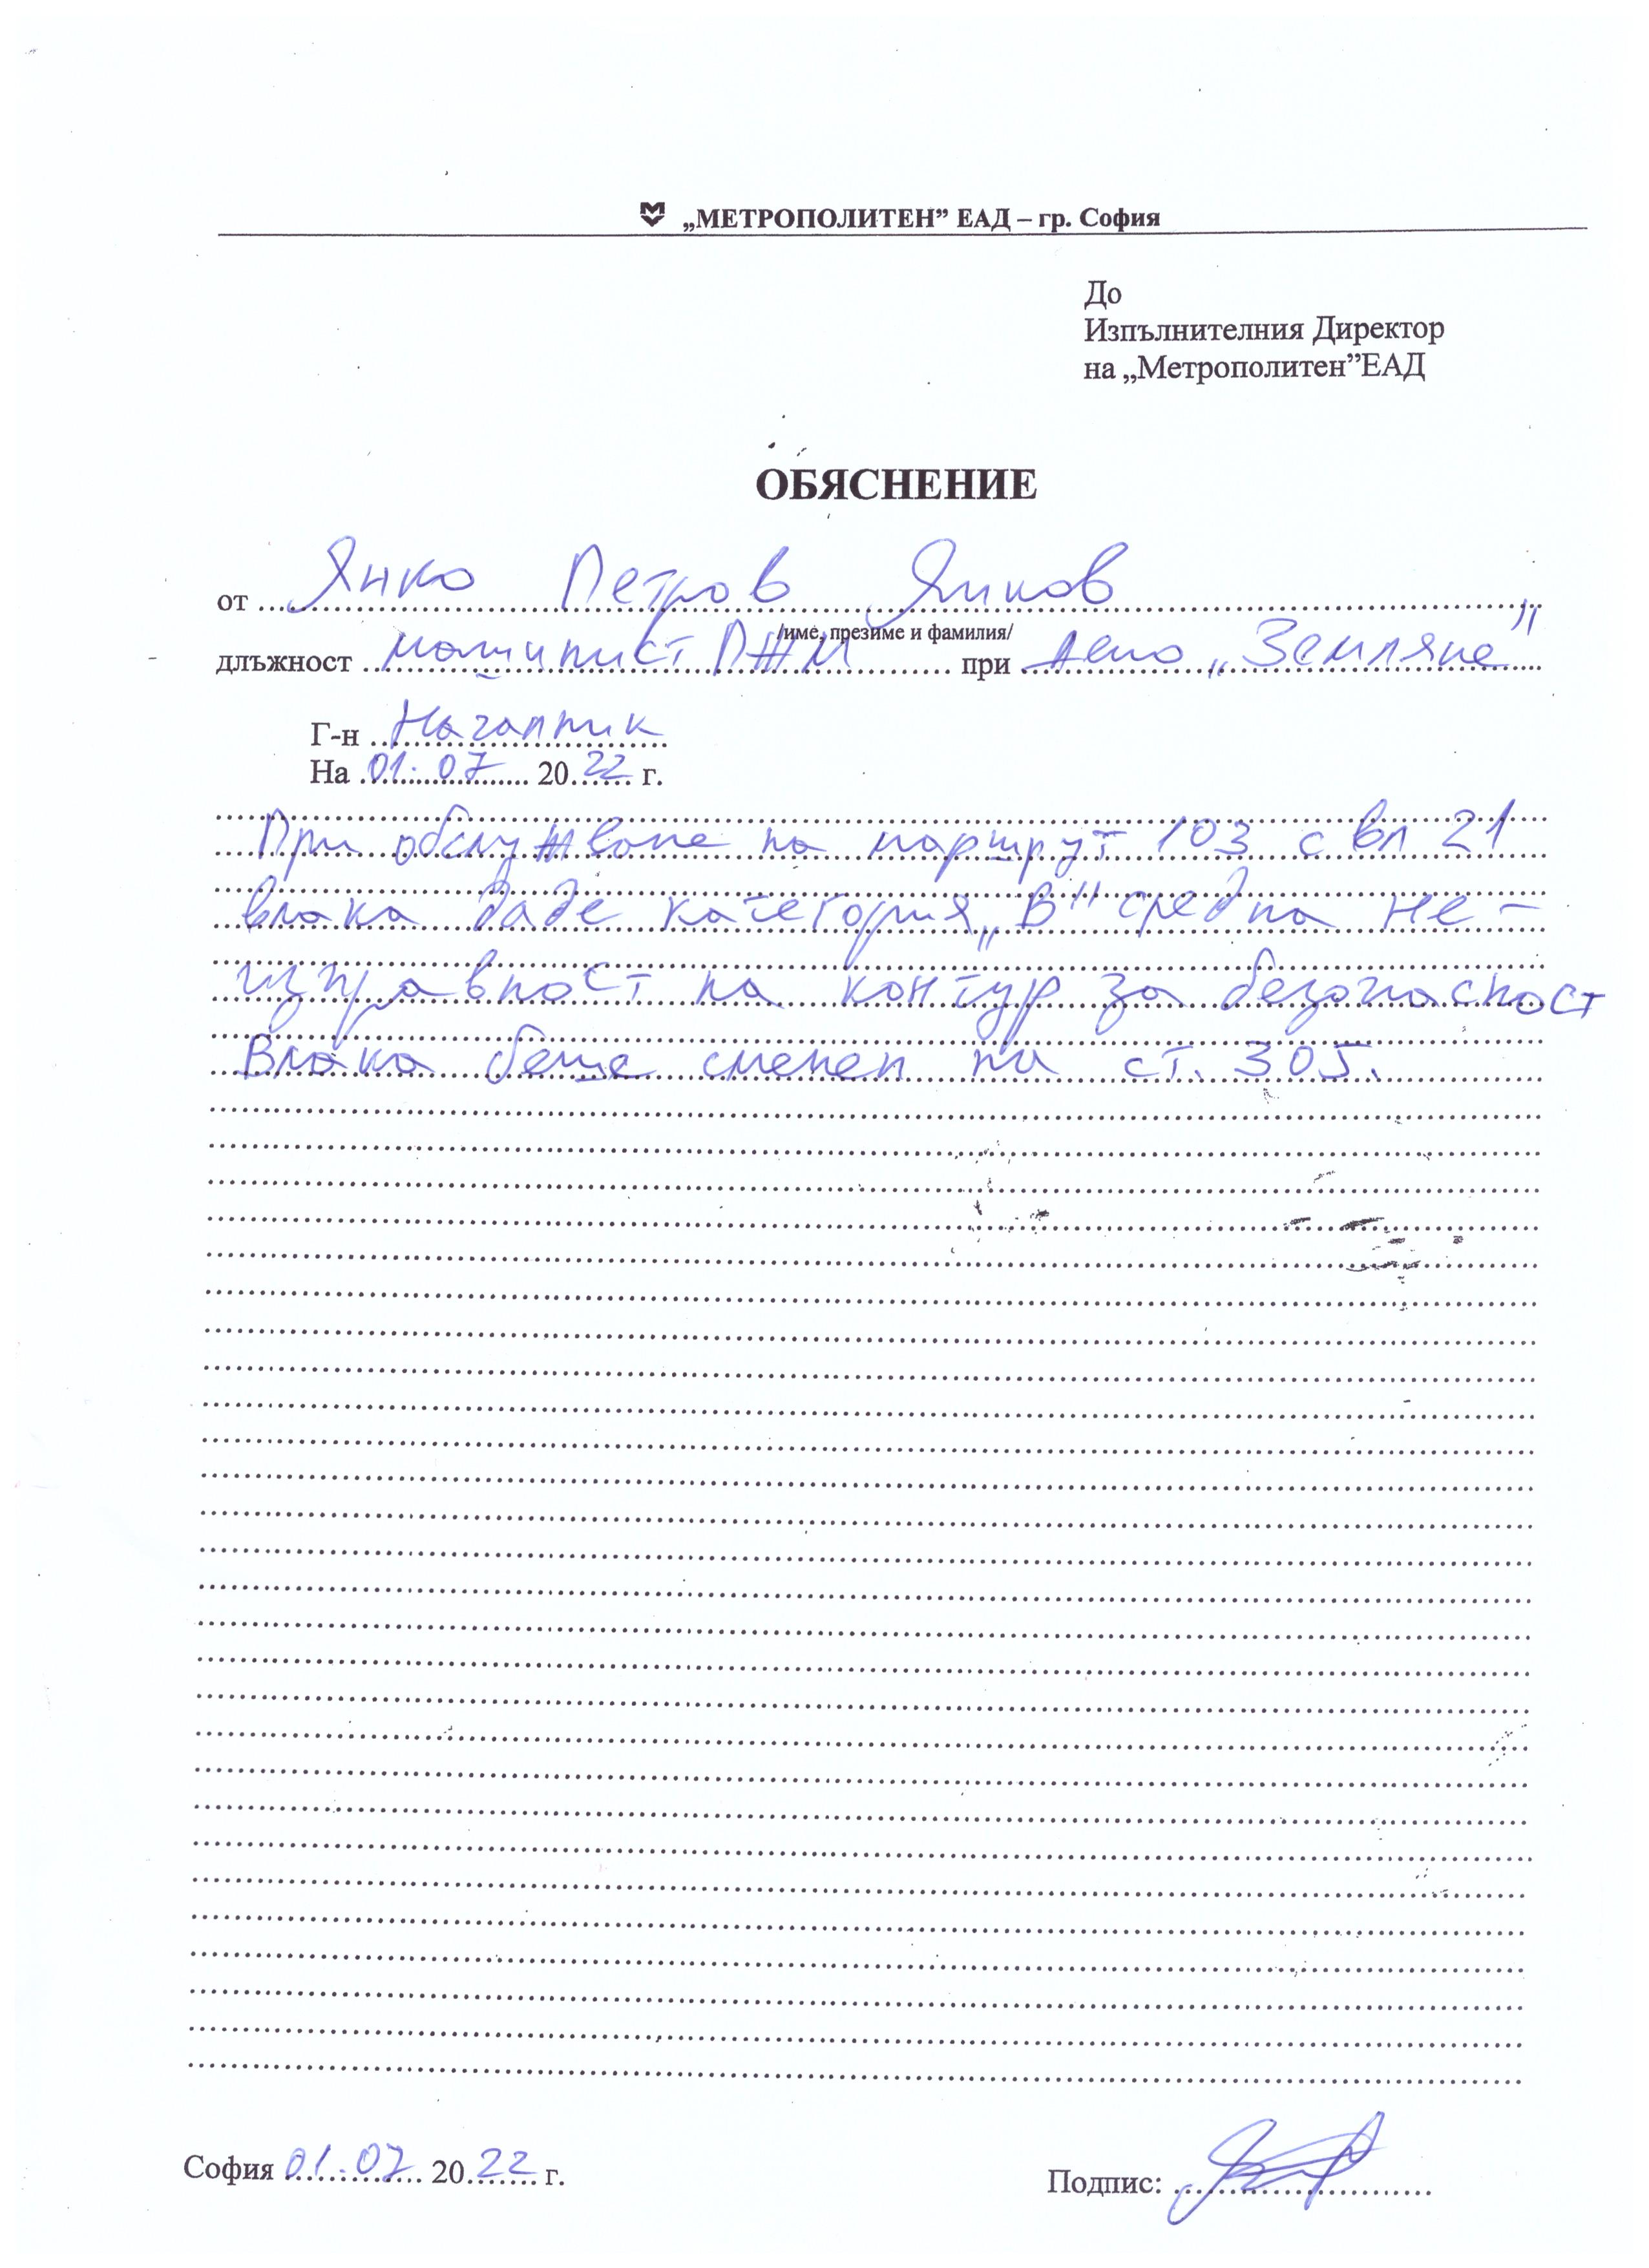 „МЕТРОПОЛИТЕН” ЕАД – гр. София
До
Изпълнителния Директор
на „Метрополитен”ЕАД
ОБЯСНЕНИЕ
от Янко Петров Янков
/име, презиме и фамилия/
длъжност машинист ПЖМ при депо „Земляне"
Г-н Началник
На 01.07 2022 г.
При обслужване на маршрут 103 с вл 21
влака даде категория „В" средна не-
изправност на контур за безопасност
Влака беше сменен на ст. 305.
София 01.07 2022 г.
Подпис: